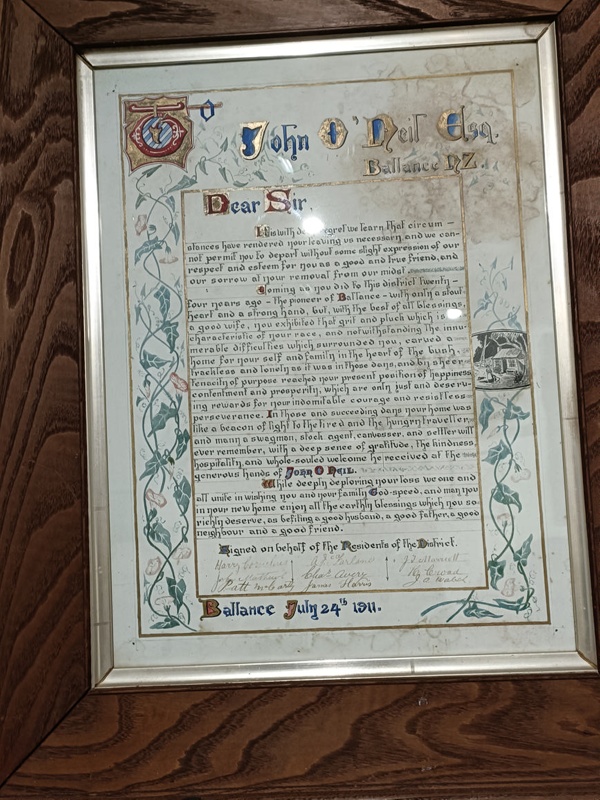 To
John O'Neil Esq.
Ballance NZ.
Dear Sir,
It is with deep regret we learn that circum-
stances have rendered your leaving us necessary, and we can-
not permit you to depart without some slight expression of our
respect and esteem for you as a good and true friend, and
our sorrow at your removal from our midst.
Coming as you did to this district twenty-
four years ago - the pioneer of Ballance - with only a stout
heart and a strong hand, but, with the best of all blessings,
a good wife, you exhibited that grit and pluck which is
characteristic of your race, and notwithstanding the innu-
merable difficulties which surrounded you, carved a
home for your self and family in the heart of the bush,
trackless and lonely as it was in those days, and by sheer
tenacity of purpose reached your present position of happiness
contentment and prosperity, which are only just and deserv-
ing rewards for your indomitable courage and resistless
perseverance. In those and succeeding days your home was
like a beacon of light to the tired and the hungry traveller
and many a swagman, stock agent, canvasser, and settler will
ever remember, with a deep sense of gratitude, the kindness,
hospitality and whole-souled welcome he received at the
generous hands of John O'Neil.
While deeply deploring your loss we one and
all unite in wishing you and your family God-speed, and may you
in your new home enjoy all the earthly blessings which you so
richly deserve, as befiting a good husband, a good father, a good
neighbour and a good friend.
Signed on behalf of the Residents of the District.
Harry
Chas Avery
Patt McCarty James Harris
Ballance July 24th 1911.